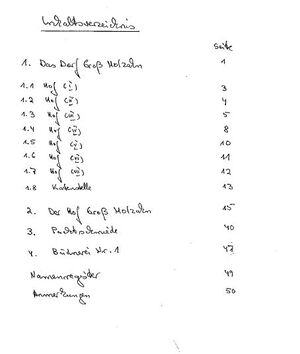 Inhaltsverzeichnis
Seite
1. Das Dorf Groß Molzahn 1
1.1 Hof (I) 3
1.2 Hof (II) 4
1.3 Hof (III) 5
1.4 Hof 8
1.5 Hof 10
1.6 Hof 11
1.7 Hof 12
1.8 Katenstelle 13
2. Der Hof Groß Molzahn 15
3. Pachtschmiede 40
4. Büdnerei Nr. 1 47
Namenregister 49
Anmerkungen 50